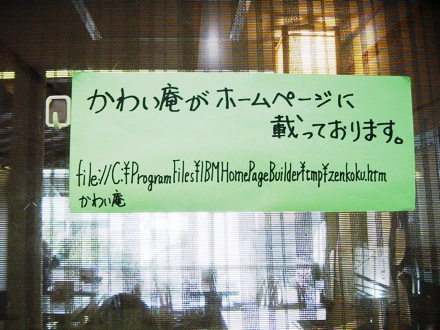 かわい庵がホームページに
載っております。
file://C:¥ProgramFiles¥IBMHomePageBuilder¥tmp¥zenkoku.htm
かわい庵